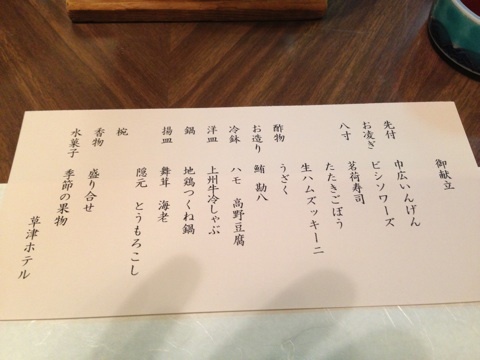 御献立
先付 巾広いんげん
ビシソワーズ
お凌ぎ 茗荷寿司
八寸 たたきごぼう
生ハムズッキーニ
酢物 うざく
お造り 鮪 勘八
冷鉢 ハモ 高野豆腐
洋皿 上州牛冷しゃぶ
鍋 地鶏つくね鍋
揚皿 舞茸 海老
隠元 とうもろこし
椀
香物 盛り合せ
水菓子 季節の果物
草津ホテル